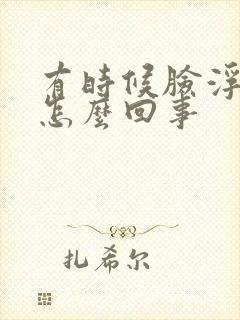 有時候臉浮
怎麼回事
扎希尔